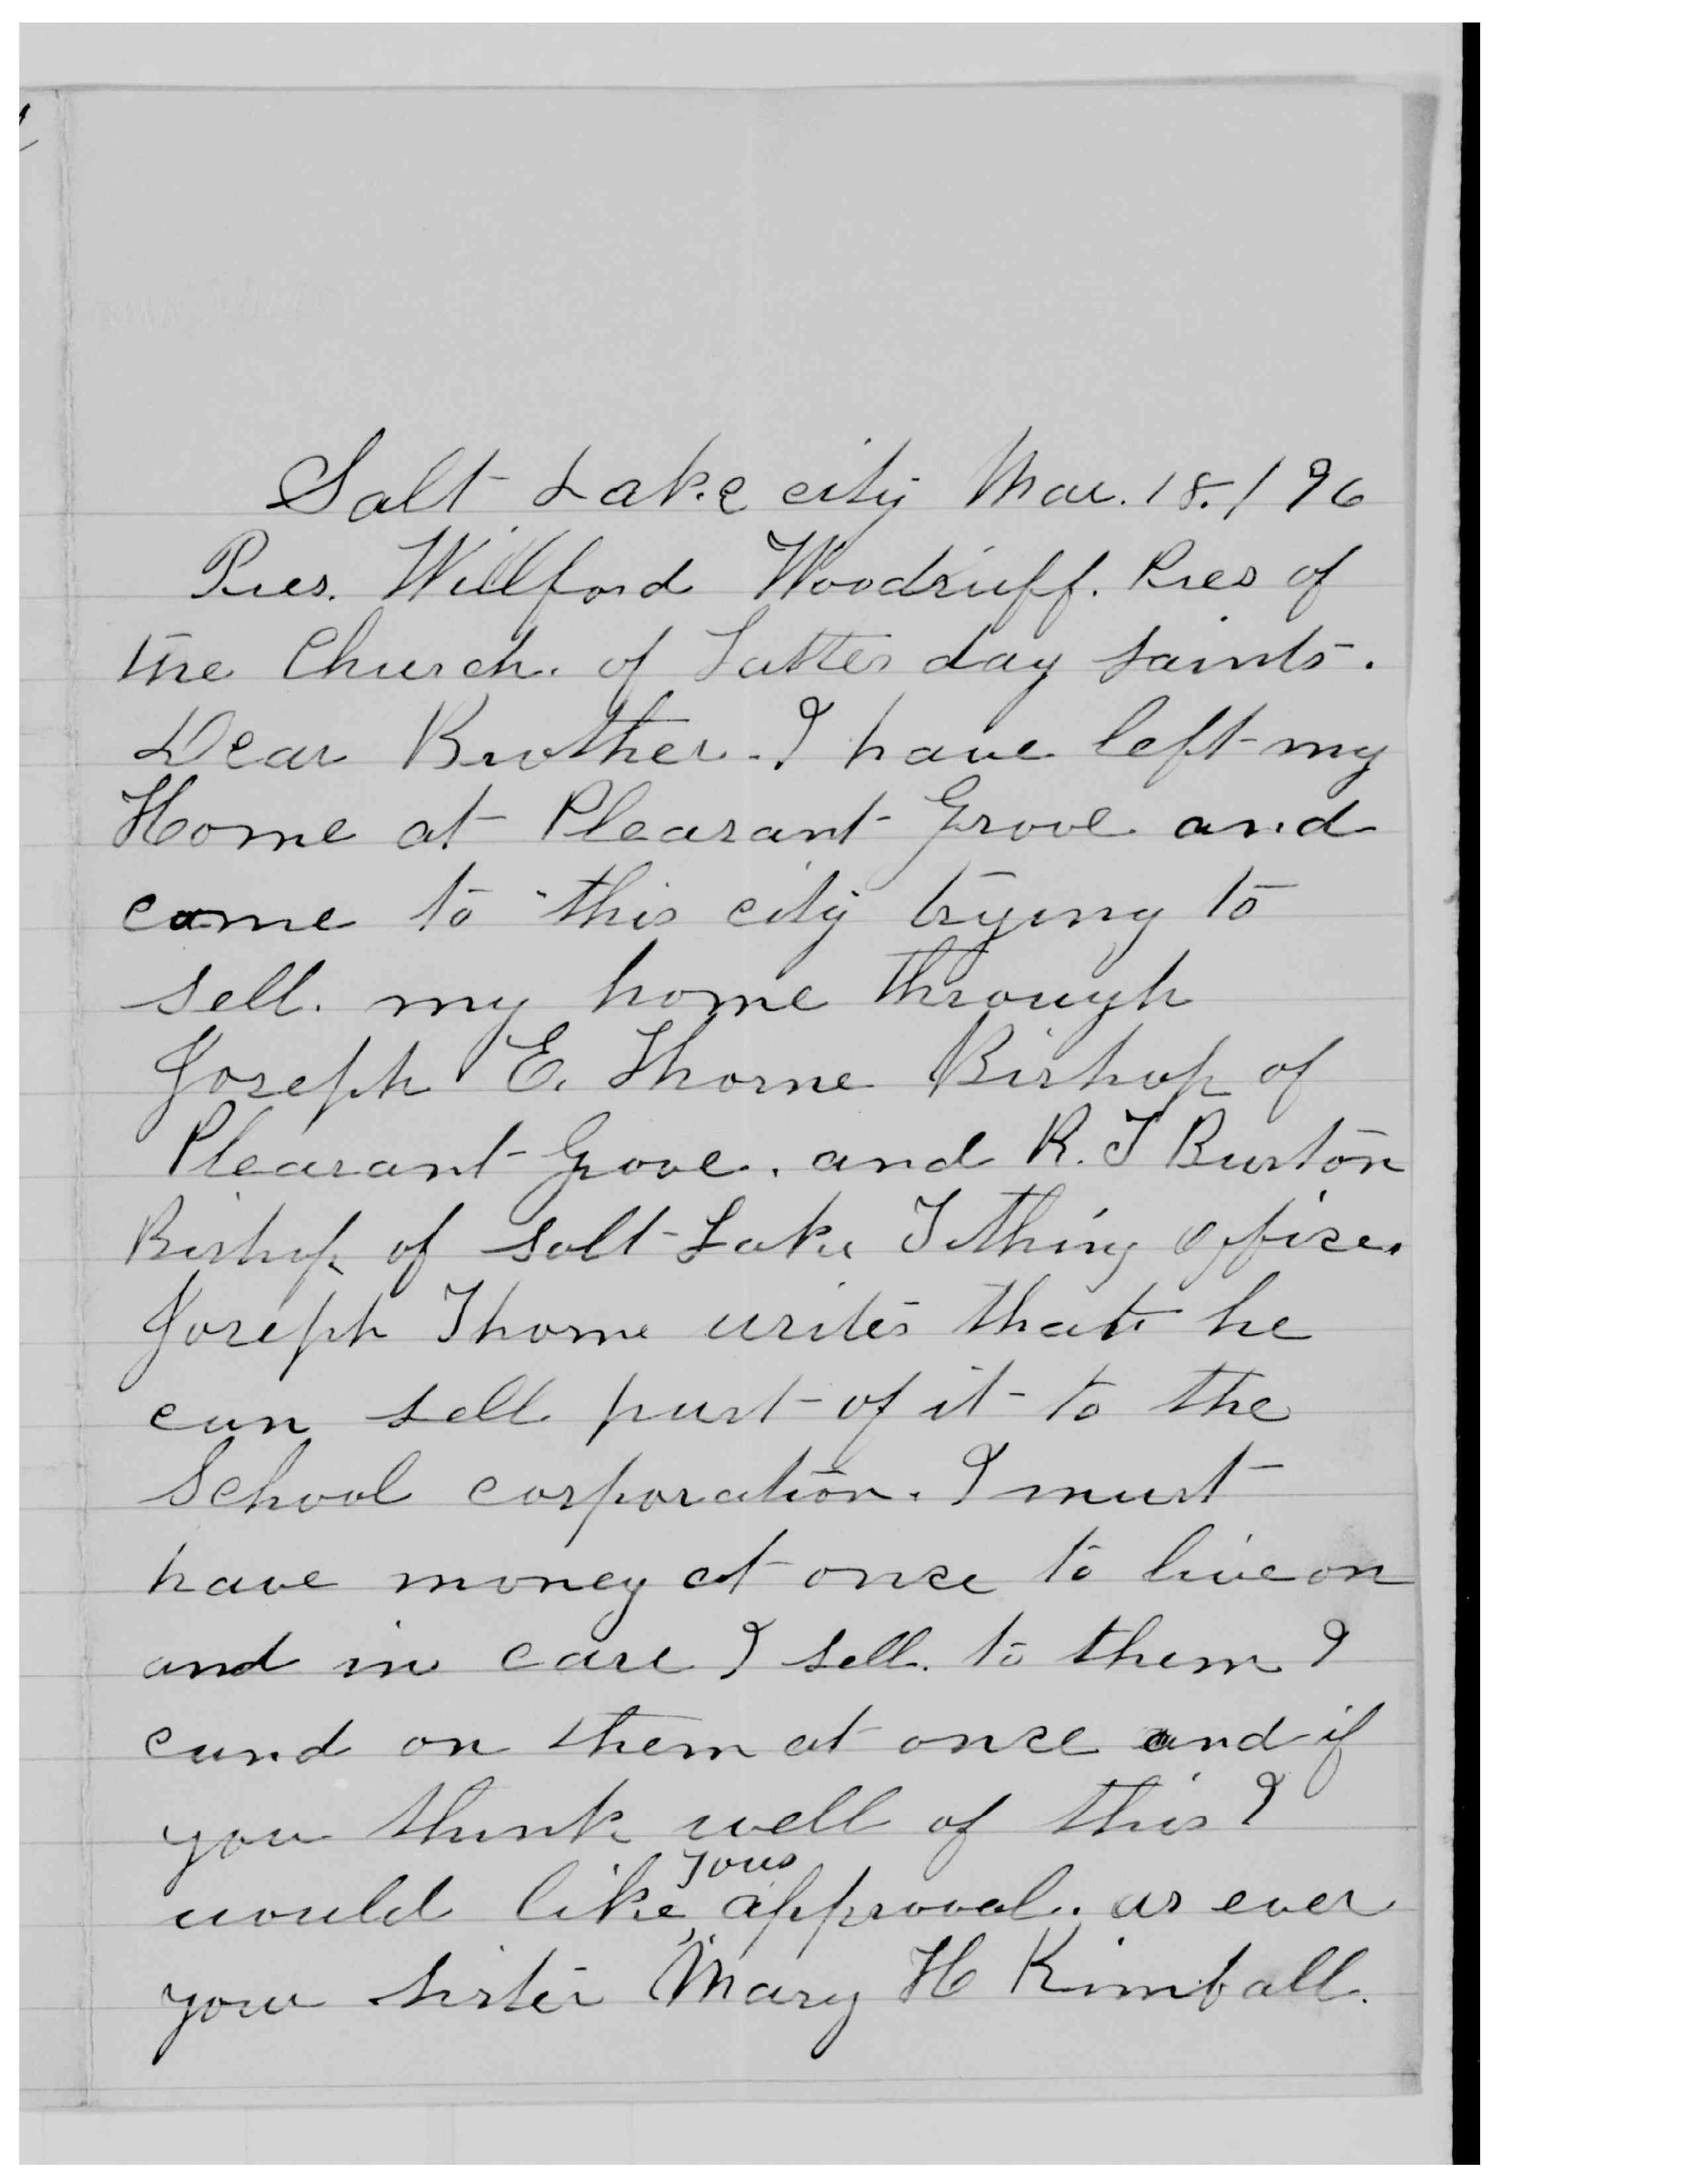 Salt Lake city Mar. 18./96
Pres. Willford Woodruff. Pres of
the Church. of Latter day saints.
Dear Brother. I have left my
Home at Pleasant Grove and
came to this city trying to
sell. my home through
Joseph E. Thorne Bishop of
Pleasant Grove. and R. T Burton
Bishop of Salt Lake Tithing offise.
Joseph Thorne writes that he
can sell part of it to the
School corporation. I must
have money at onse to live on
and in case I sell. to them I
cand on them at onse and if
you think well of this I
your
would like approval. as ever
your sister Mary H Kimball.